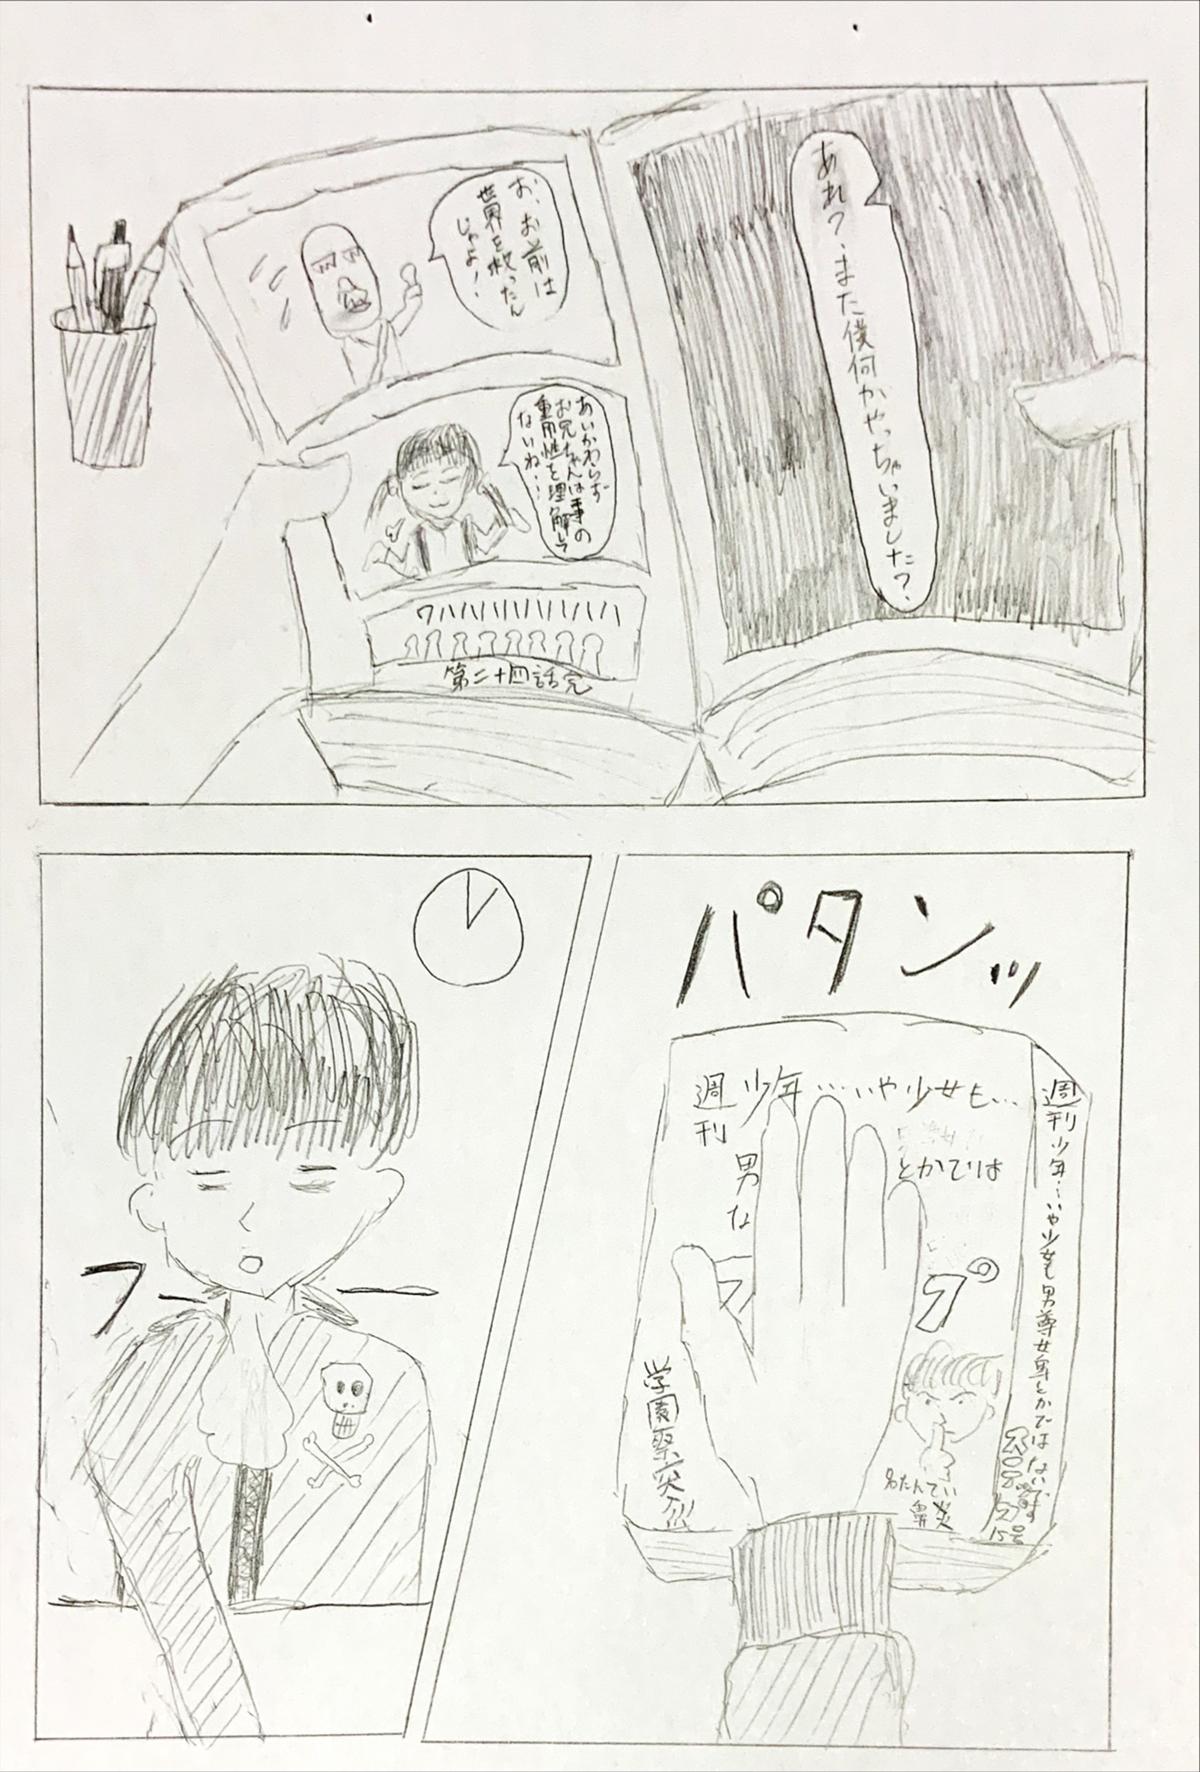 あれ?、また僕何かやっちゃいました?
お、お前は
世界を救ったん
じゃよ!
あいかわらず
お兄ちゃんは事の
重用性を理解して
ないね…
ワハハハハハハハハハ
第二十四話完
パタンッ
週刊
少年…いや少女も…
男な
とかでは
プ
学園祭突入
名たんてい
鼻炎
週刊少年…いや少女も男尊女卑とかではないです
15号
フーー